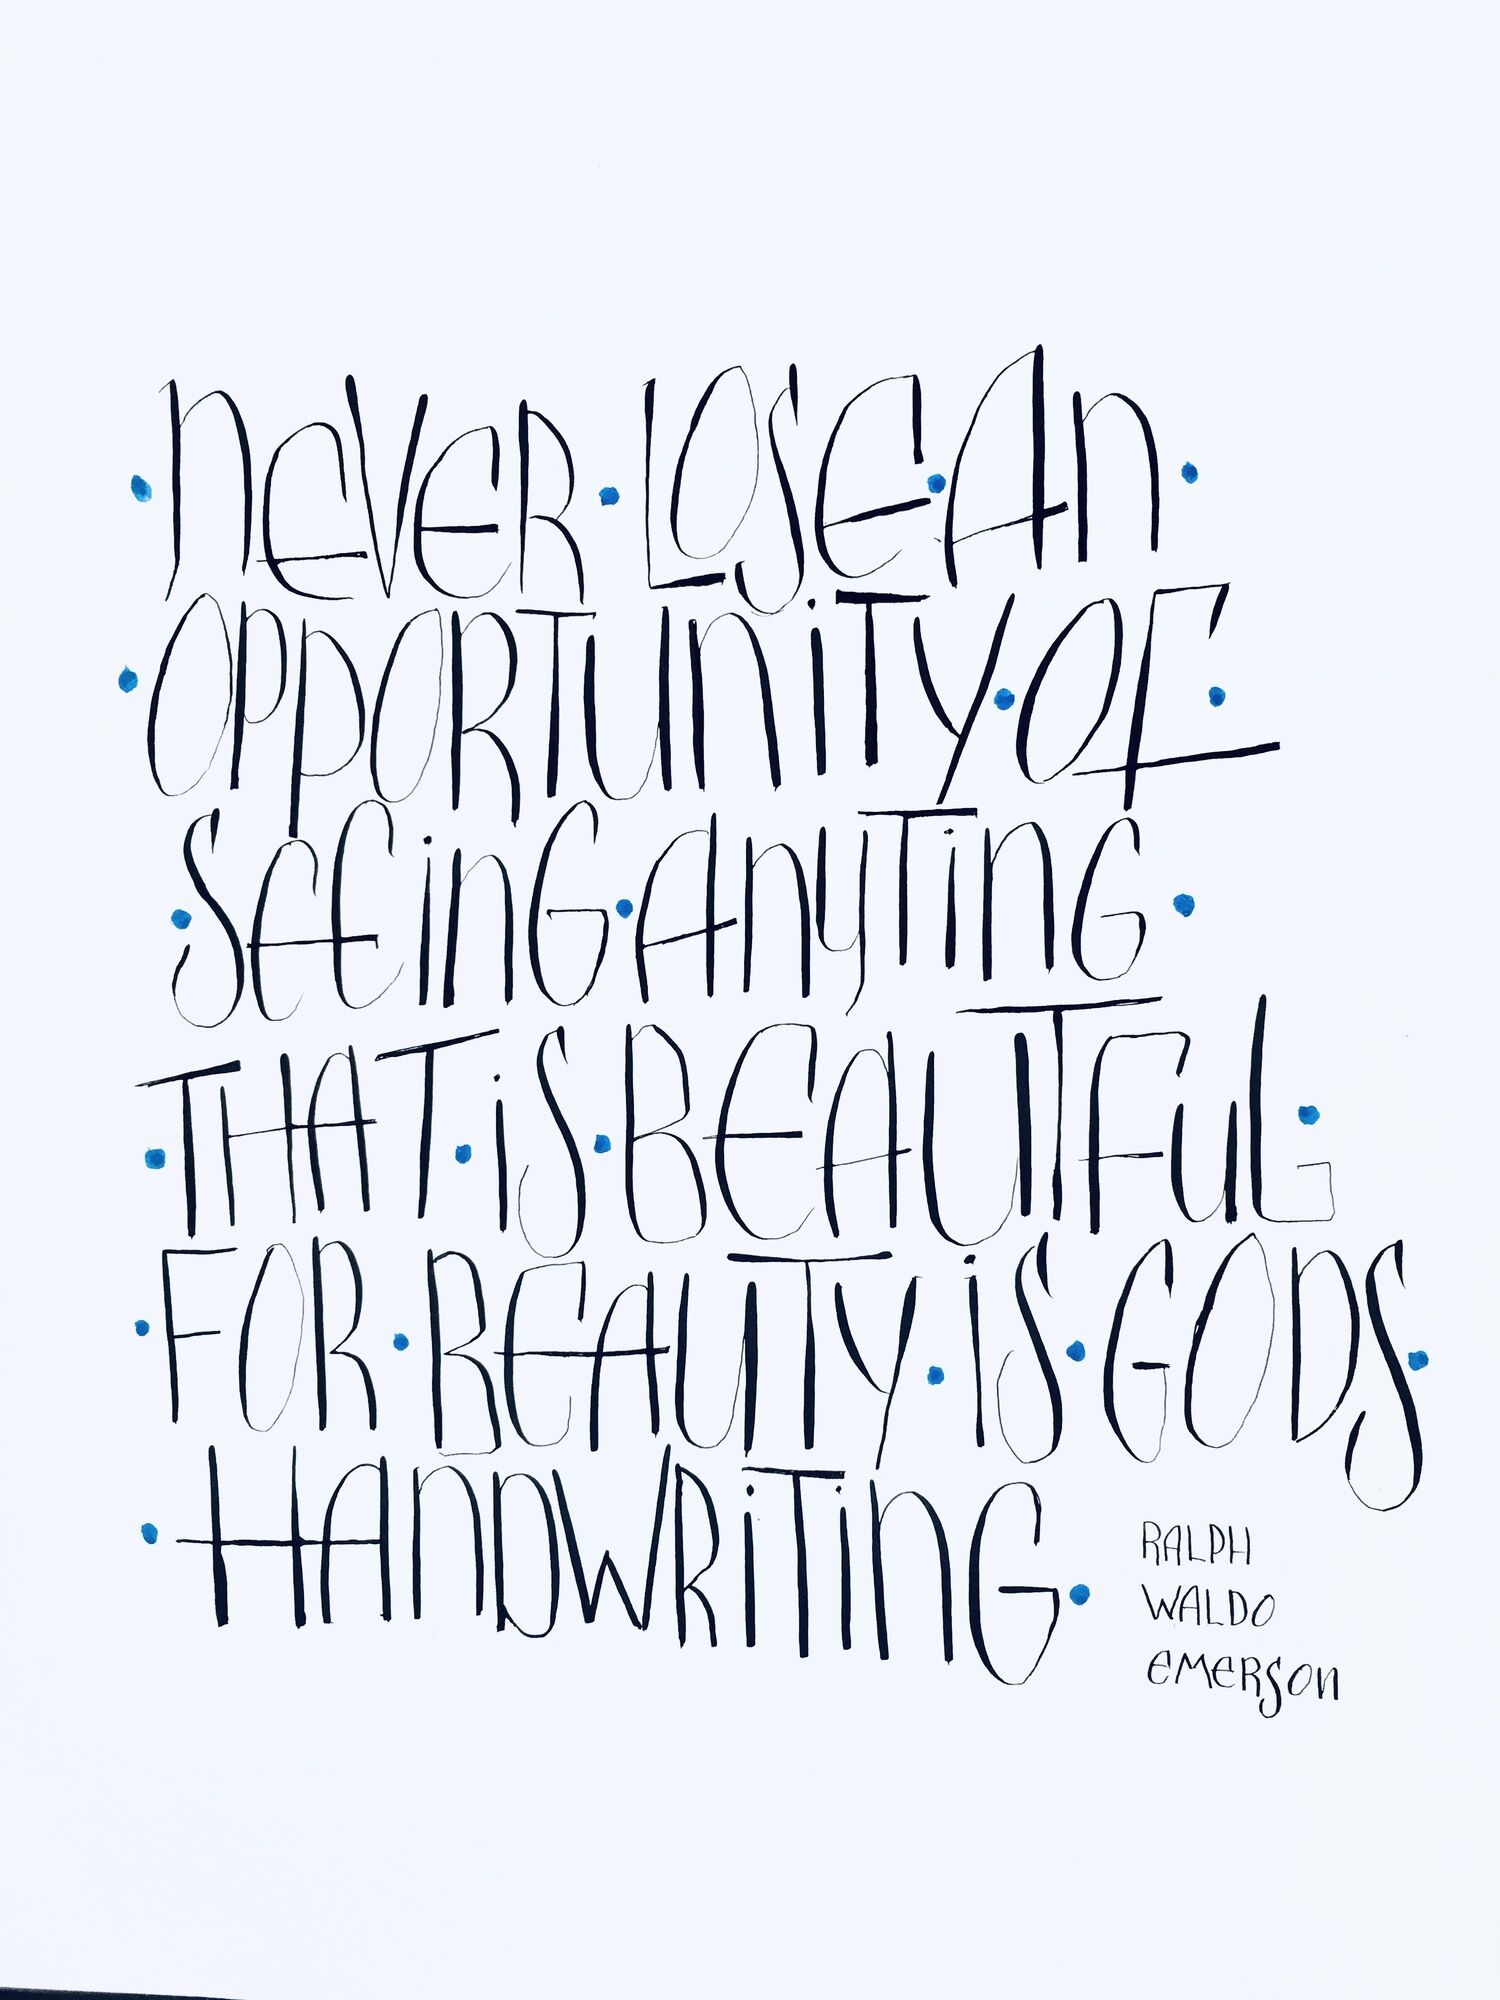 ·never·Lose·An·
·OppORTUniTy·OF·
·SeeinG·AnyTinG·
·THAT·iS·BEAUTFuL·
·FOR·BEAUTY·iS·GODS·
·HAnDWRiTinG·
RALPH
WALDO
emerson